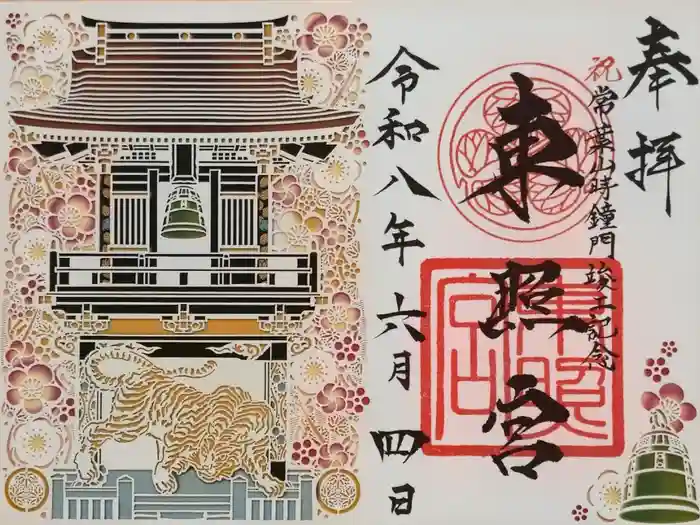 奉拝
祝 常葉山時鐘門竣工記念
東照宮
令和八年六月四日